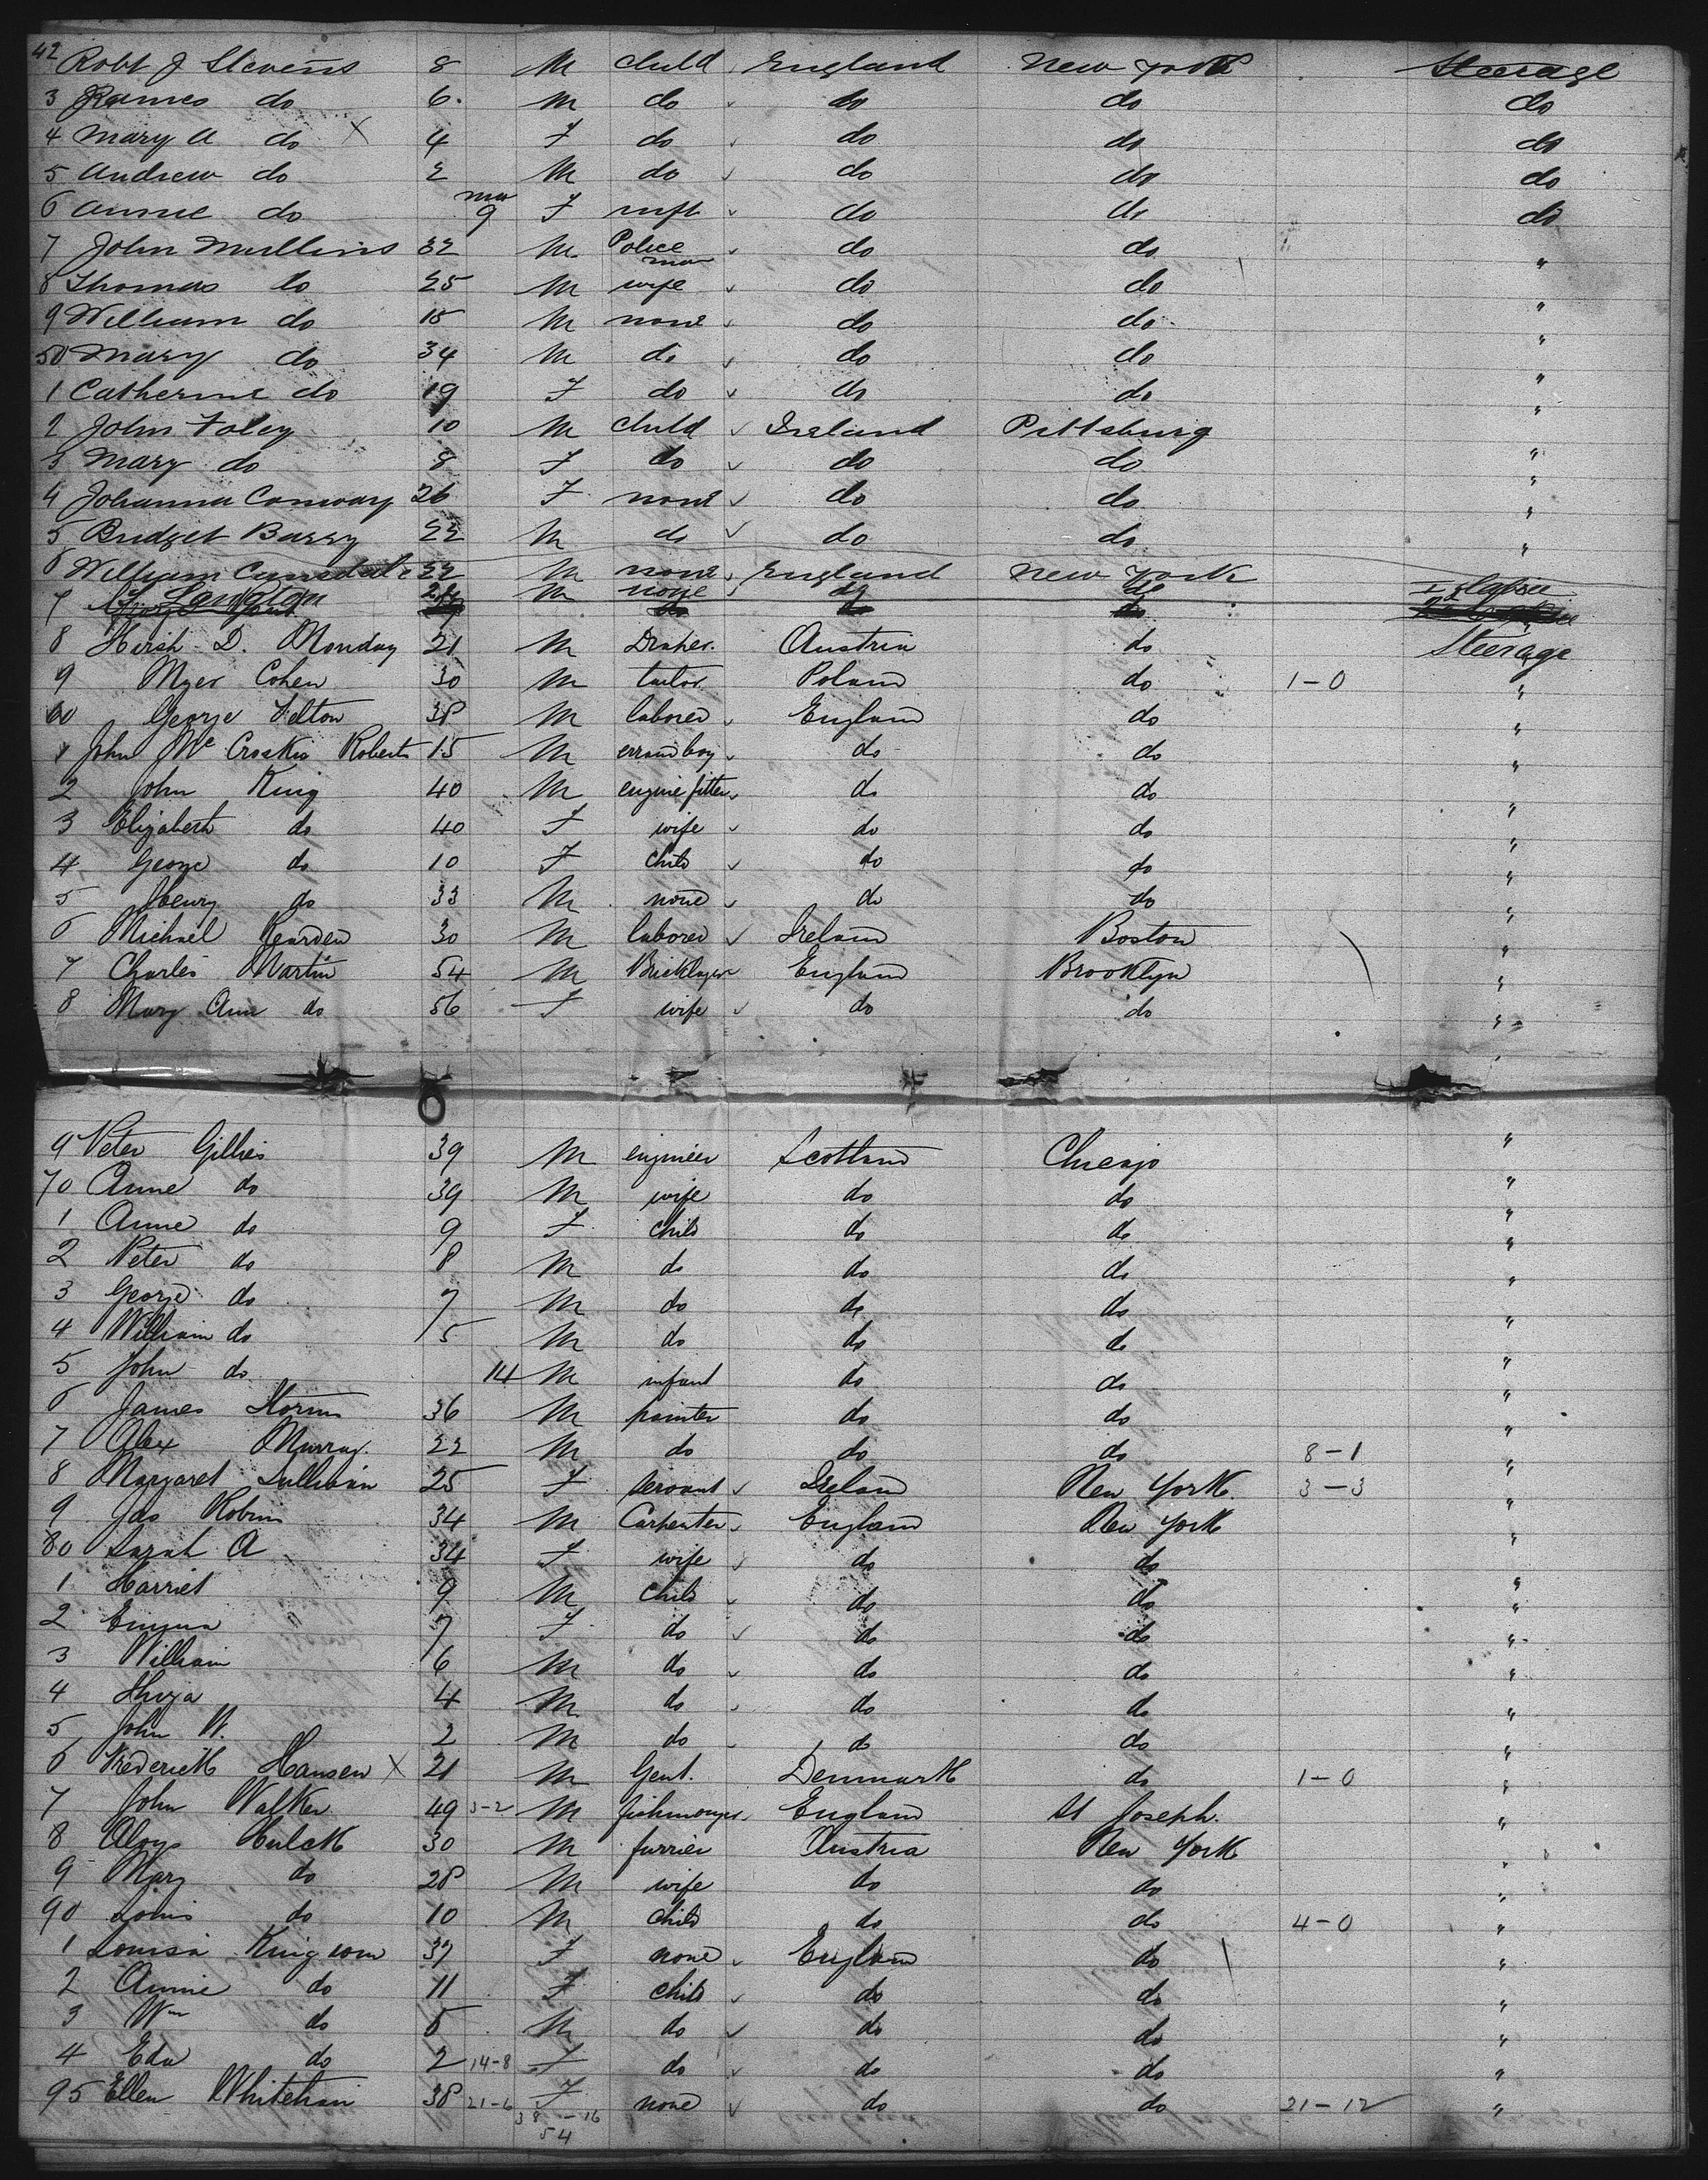 42 Robt J Stevens 8 M child England New York Steerage
3 James do 6 M do do do do
4 Mary A do X 4 F do do do do
5 Andrew do 2 M do do do do
6 Annie do mos 9 F inft do do do
7 John Mullins 32 M Police man do do "
8 Thomas do 25 M wife do do "
9 William do 15 M none do do "
50 Mary do 34 M do do do "
1 Catherine do 19 F do do do "
2 John Foley 10 M child Ireland Pittsburg "
3 Mary do 8 F do do do "
4 Johanna Conway 26 F none do do "
5 Bridget Barry 22 M do do do "
6 William 22 M none England New York
7 Langton M none do do
8 Hirsh D. Monday 21 M Draper. Austria do Steerage
9 Myer Cohen 30 M tailor Poland do 1-0 "
60 George Felton 38 M laborer England do "
1 John Mc Croskie Roberts 15 M errand boy do do "
2 John King 40 M engine fitter do do "
3 Elizabeth do 40 F wife do do "
4 George do 10 F child do do "
5 Henry do 33 M none do do "
6 Michael Rearden 30 M laborer Ireland Boston "
7 Charles Martin 54 M Bricklayer England Brooklyn "
8 Mary Ann do 56 F wife do do "
9 Peter Gillies 39 M engineer Scotland Chicago "
70 Anne do 39 M wife do do "
1 Anne do 9 F child do do "
2 Peter do 8 M do do do "
3 George do 7 M do do do "
4 William do 5 M do do do "
5 John do 14 M infant do do "
6 James 36 M painter do do "
7 Alex Murray. 22 M do do do 8-1 "
8 Margaret Sullivan 25 F servant Ireland New York. 3-3 "
9 Jas 34 M Carpenter England New York "
80 Sarah A 34 F wife do do "
1 Harriet 9 M child do do "
2 Emma 7 F do do do "
3 William 6 M do do do "
4 4 M do do do "
5 John W. 2 M do do do "
6 Frederick Hansen X 21 M Gent. Denmark do 1-0 "
7 John Walker 49 3-2 M fishmonger England St Joseph. "
8 Aloys 30 M furrier Austria New York "
9 Mary do 28 M wife do do "
90 Louis do 10 M child do do 4-0 "
1 Louisa 37 F none England do "
2 Annie do 11 F child do do "
3 Wm do 5 M do do do "
4 Eda do 2 14-8 F do do do "
95 Ellen 38 21-6 F none do do 21-12 "
38 -16
54